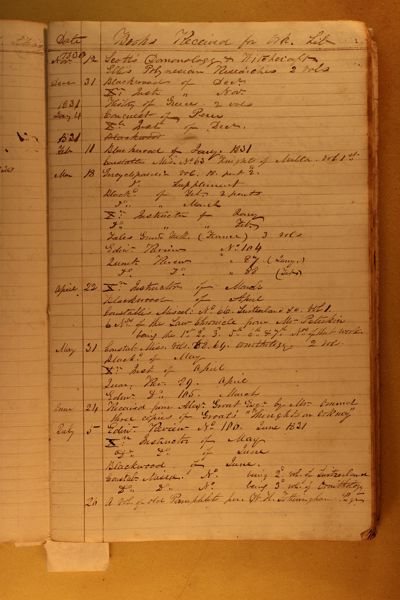 Date Books Received for Ork. Lib
1830
Nov 12 Scotts Demonology & Witchcraft
Ellis Polynesian Researches 2 vols
Dec 31 Blackwood of Decr.
Xn. Inst. " Nov.
1831 History of Greece 2 vols
Jany 4 Conquest of Peru
Xn Inst of Dec.
1831 Blackwood
Feb 11 Blackwood for Jany. 1831
Constable Mis. No 63 Knights of Malta. vol 1st.
Mar 18 Encyclopaedia vol. part 2.
Do. Supplement
Blackd. of Feb 2 parts
Do. " March
Xn. Instructor for Jany
Do. " Feb
Tales (France) 3 vols
Edinr. Review No. 104
Quart. Review " 87 (Jany.)
Do. Do. " 88 (Feb)
April 22 Xn Instructor of March
Blackwood of April
Constable's Miscel. No. 66. Switzerland &c. vol 1.
6 Nos. of the Law Chronicle from Mr Peterkin
being the 1st 2. 3. 5th 6 & 7th Nos of that work
May 31 Constab. Misc. vols. 62. 64. Ornithology 2 vol.
Blackd. of May
Xn. Inst of April
Quar. Rev. 89. April
Edinr. Do. 105. March
June 24 Received from Alexr. Groat Esqr. by Mr
three copies of Groats "Thoughts on Orkney"
July 5 Edinr. Review No. 106. June 1831
Xn Instructor of May
Do. Do. of June
Blackwood of June.
Constab. Miscel. No. being 2d. vol. of Switzerland
Do. Do. No. being 3d. vol. of Ornithology
20 A vol. of old Pamphlets from W. H. Fotheringham Esqr.